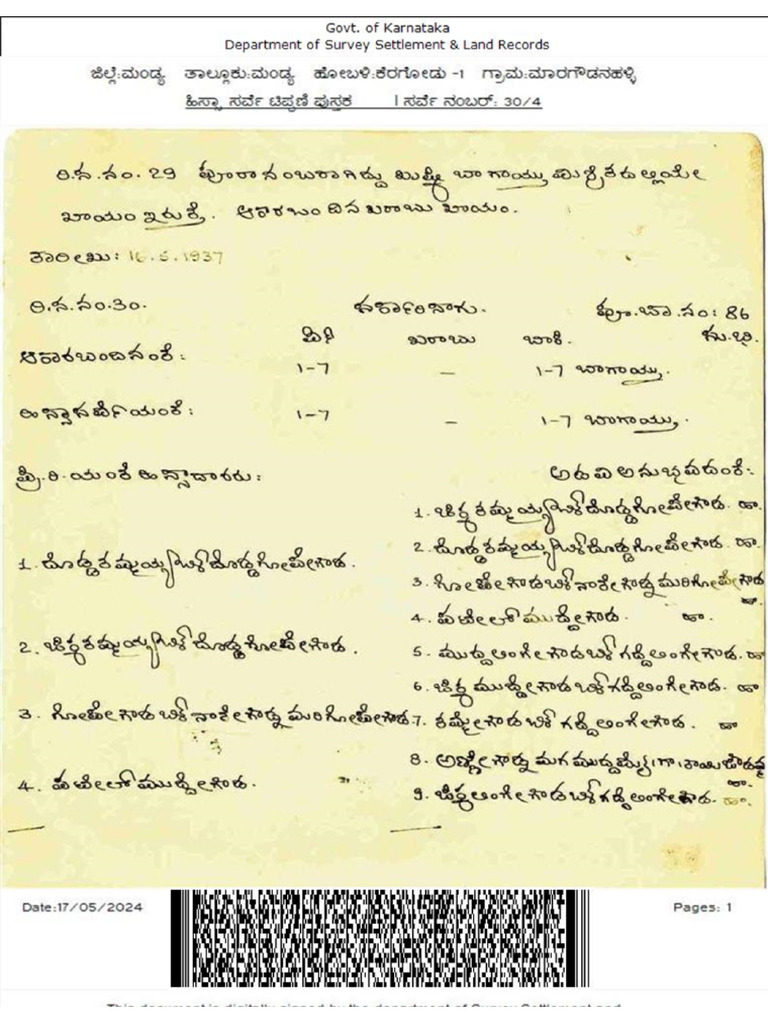 Govt. of Karnataka
Department of Survey Settlement & Land Records
ಜಿಲ್ಲೆ:ಮಂಡ್ಯ ತಾಲ್ಲೂಕು:ಮಂಡ್ಯ ಹೋಬಳಿ:ಕೆರಗೋಡು -1 ಗ್ರಾಮ:ಮಾರಗೌಡನಹಳ್ಳಿ
ಹಿಸ್ಸಾ ಸರ್ವೆ ಟಿಪ್ಪಣಿ ಪುಸ್ತಕ | ಸರ್ವೆ ನಂಬರ್: 30/4
ರಿ.ಸ.ನಂ. 29 ಪೂರಾ ನಂಬರಾಗಿದ್ದು ಖುಷ್ಕಿ ಬಾಗಾಯ್ತು
ಖಾಯಂ ಇರುತ್ತೆ. ಆಕಾರಬಂದಿನ ಖರಾಬು ಖಾಯಂ.
ತಾರೀಖು: 16.5.1937
ರಿ.ಸ.ನಂ.30. ಸರ್ಕಾರಿಬಾಗು. ಪೂ.ಬಾ.ನಂ: 86
ಖರಾಬು ಬಾಕಿ.
ಆಕಾರಬಂದಿನಂತೆ: 1-7 – 1-7 ಬಾಗಾಯ್ತು.
1-7 – 1-7 ಬಾಗಾಯ್ತು.
ಪ್ರೀ.ರಿ.ಯಂತೆ ಹಿಸ್ಸಾದಾರರು: ಅನುಭವದಂತೆ:
1. ಚಿಕ್ಕತಮ್ಮಯ್ಯ ಬಿನ್ ದೊಡ್ಡಗೋಪೇಗೌಡ.
2. ದೊಡ್ಡತಮ್ಮಯ್ಯ ಬಿನ್ ದೊಡ್ಡಗೋಪೇಗೌಡ.
1. ದೊಡ್ಡತಮ್ಮಯ್ಯ ಬಿನ್ ದೊಡ್ಡಗೋಪೇಗೌಡ.
3. ಗೋಪೇಗೌಡ ಬಿನ್ ಮರಿಗೋಪೇಗೌಡ
4. ಪಟೇಲ್ ಮುದ್ದೇಗೌಡ.
2. ಚಿಕ್ಕತಮ್ಮಯ್ಯ ಬಿನ್ ದೊಡ್ಡಗೋಪೇಗೌಡ.
5. ಮುದ್ದಲಿಂಗೇಗೌಡ ಬಿನ್ ಲಿಂಗೇಗೌಡ.
6. ಚಿಕ್ಕಮುದ್ದೇಗೌಡ ಬಿನ್ ಲಿಂಗೇಗೌಡ.
3. ಗೋಪೇಗೌಡ ಬಿನ್ ಮರಿಗೋಪೇಗೌಡ.
7. ತಮ್ಮೇಗೌಡ ಬಿನ್ ಲಿಂಗೇಗೌಡ.
8. ಅಣ್ಣೇಗೌಡ್ನ ಮಗ
4. ಪಟೇಲ್ ಮುದ್ದೇಗೌಡ.
9. ಚಿಕ್ಕಲಿಂಗೇಗೌಡ ಬಿನ್ ಲಿಂಗೇಗೌಡ.
Date:17/05/2024
Pages: 1
This document is digitally signed by the department of Survey Settlement and